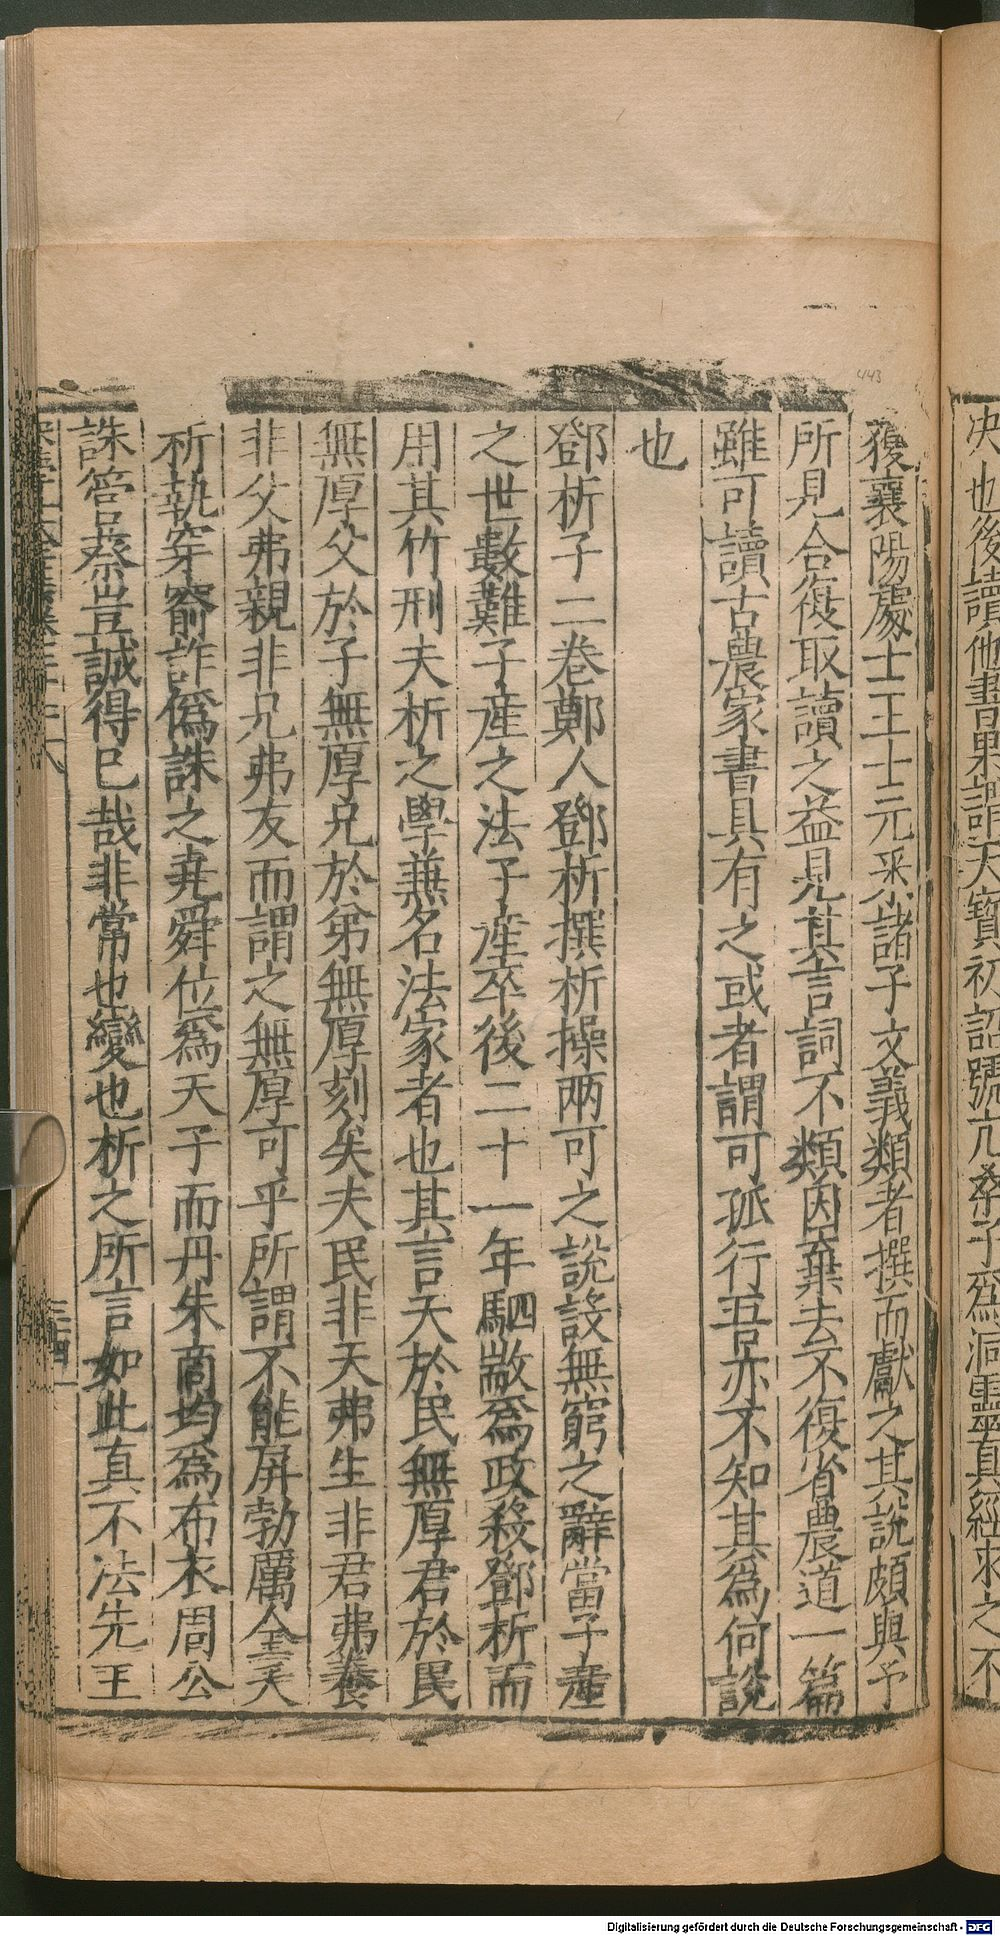 決也後讀他書果謂天寶初詔號亢桑子爲洞靈真經求之不
443
獲襄陽處士王士元采諸子文義類者撰而獻之其說頗與予
所見合復取讀之益見其言詞不類因棄去不復省農道一篇
雖可讀古農家書具有之或者謂可孤行吾亦不知其為何說
也
鄧析子二卷鄭人鄧析撰析操兩可之說設無窮之辭當子產
之世數難子產之法子產卒後二十一年駟歂爲政殺鄧析而
用其竹刑夫析之學兼名法家者也其言天於民無厚君於民
無厚父於子無厚兄於弟無厚刻矣夫民非天弗生非君弗養
非父弗親非兄弗友而謂之無厚可乎所謂不能屏勃厲全夭
析執穿窬詐僞誅之堯舜位爲天子而丹朱商均爲布衣周公
誅管蔡豈誠得已哉非常也變也析之所言如此真不法先王
Digitalisierung gefördert durch die Deutsche Forschungsgemeinschaft - DFG